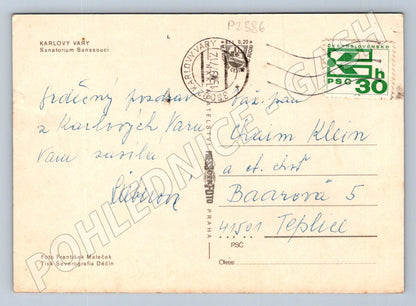 P2386
KARLOVY VARY
Sanatorium Sanssouci
Kčs 0,20
KARLOVY VARY
ČESKOSLOVENSKO
PSČ 30h
Srdečný pozdrav
z Karlových Varů
Vám zasílá
Váž. pan
Chaim Klein
a ct. choť
Baarová 5
41501 Teplice
PSČ
Okres
PRAHA
Foto František Maleček
Tisk Severografia Děčín
POHLEDNICE - CASH